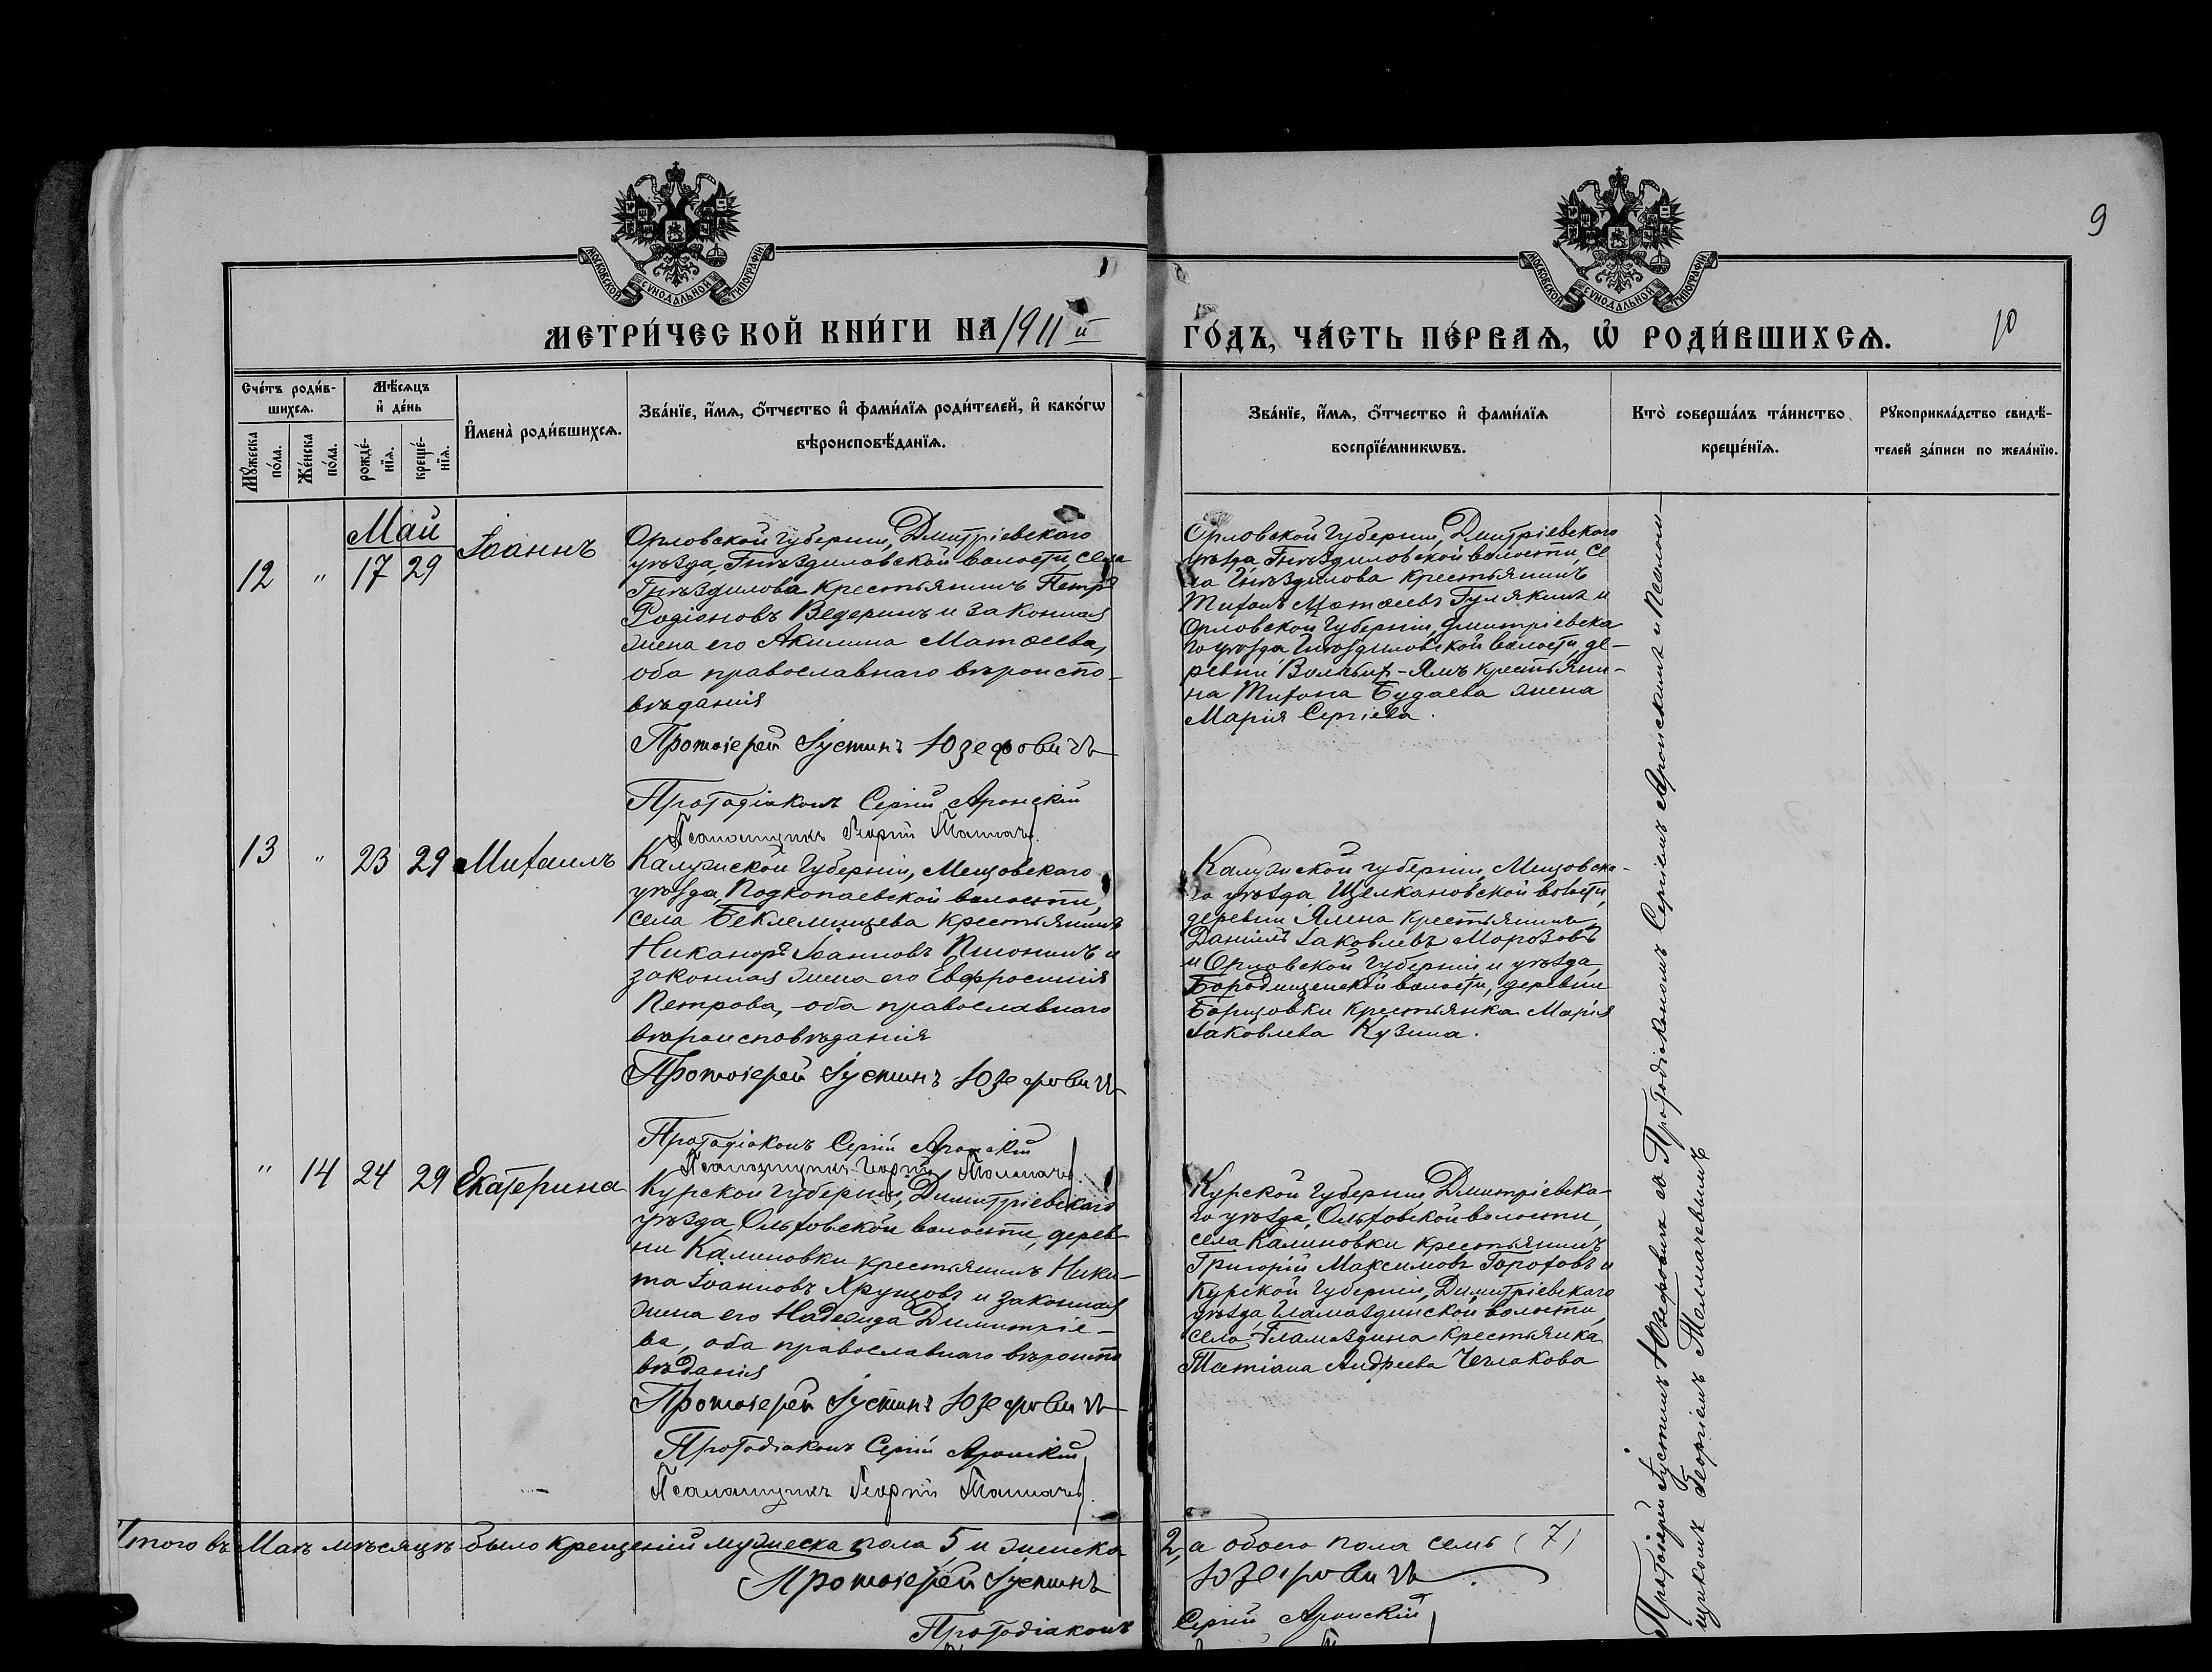 9
МОСКОВСКОЙ СѴНОДАЛЬНОЙ ТИПОГРАФІИ
МОСКОВСКОЙ СѴНОДАЛЬНОЙ ТИПОГРАФІИ
МЕТРИ́ЧЕСКОЙ КНИ́ГИ НА 1911 й
ГО́ДЪ, ЧА́СТЬ ПЕ́РВАѦ, Ѽ РОДИ́ВШИХСѦ.
10
Сче́тъ роди́в-
шихсѧ.
Мꙋ́жеска по́ла.
Же́нска по́ла.
Мѣ́сѧцъ
и҆ де́нь
рожде́-
нїѧ.
креще́-
нїѧ.
И҆мена̀ роди́вшихсѧ.
Зва́нїе, и҆́мѧ, ѻ҆́тчество и҆ фами́лїѧ роди́телей, и҆ како́гѡ
вѣроисповѣ́данїѧ.
Зва́нїе, и҆́мѧ, ѻ҆́тчество и҆ фами́лїѧ
воспрїе́мникѡвъ.
Кто̀ соверша́лъ та́инство
креще́нїѧ.
Рꙋкоприкла́дство свидѣ́-
телей за́писи по жела́нїю.
Май
12 " 17 29 Іоаннъ
Орловской губерніи, Дмитріевскаго
уѣзда, Гнѣздиловской волости, села
Гнѣздилова крестьянинъ Петръ
Родіоновъ Ведеринъ и законная
жена его Акилина Матѳеева,
оба православнаго вѣроиспо-
вѣданія
Протоіерей Іустинъ Юзефовичъ
Протодіаконъ Сергій Аронскій
Псаломщикъ Георгій Толмачевъ
Орловской губерніи, Дмитріевскаго
уѣзда, Гнѣздиловской волости, се
ла Гнѣздилова крестьянинъ
Тихонъ Матѳеевъ Гулякинъ и
Орловской губерніи, Дмитріевска
го уѣзда Гнѣздиловской волости, де-
ревни Вольныхъ-Ямъ крестьяни-
на Тихона Будаева жена
Марія Сергіева.
13 " 23 29 Михаилъ
Калужской губерніи, Мещовскаго
уѣзда, Подкопаевской волости,
села Беклемищева крестьянинъ
Никаноръ Іоанновъ Піонинъ и
законная жена его Евфросинія
Петрова, оба православнаго
вѣроисповѣданія
Протоіерей Іустинъ Юзефовичъ
Протодіаконъ Сергій Аронскій
Псаломщикъ Георгій Толмачевъ
Калужской губерніи, Мещовска-
го уѣзда Щелкановской волости,
деревни Ялена крестьянинъ
Даніилъ Іаковлевъ Морозовъ
и Орловской губерніи и уѣзда,
Бородищенской волости, деревни
Борщовки крестьянка Марія
Іаковлева Кузина.
" 14 24 29 Екатерина
Курской губерніи, Димитріевскаго
уѣзда, Ольховской волости, дерев-
ни Калиновки крестьянинъ Ники-
та Іоанновъ Хрущовъ и законная
жена его Надежда Димитріе-
ва, оба православнаго вѣроиспо
вѣданія
Протоіерей Іустинъ Юзефовичъ
Протодіаконъ Сергій Аронскій
Псаломщикъ Георгій Толмачевъ
Курской губерніи, Дмитріевска-
го уѣзда, Ольховской волости,
села Калиновки крестьянинъ
Григорій Максимовъ Гороховъ и
Курской губерніи, Димитріевскаго
уѣзда, Гламаздинской волости,
села Гламаздина крестьянка
Татіана Андреева Чеглакова
Протоіерей Іустинъ Юзефовичъ съ Протодіакономъ Сергіемъ Аронскимъ и Псалом-
щикомъ Георгіемъ Толмачевымъ
Итого въ Маѣ мѣсяцѣ было крещеній мужеска пола 5, и женска 2, а обоего пола семь (7)
Протоіерей Іустинъ Юзефовичъ
Протодіаконъ Сергій Аронскій